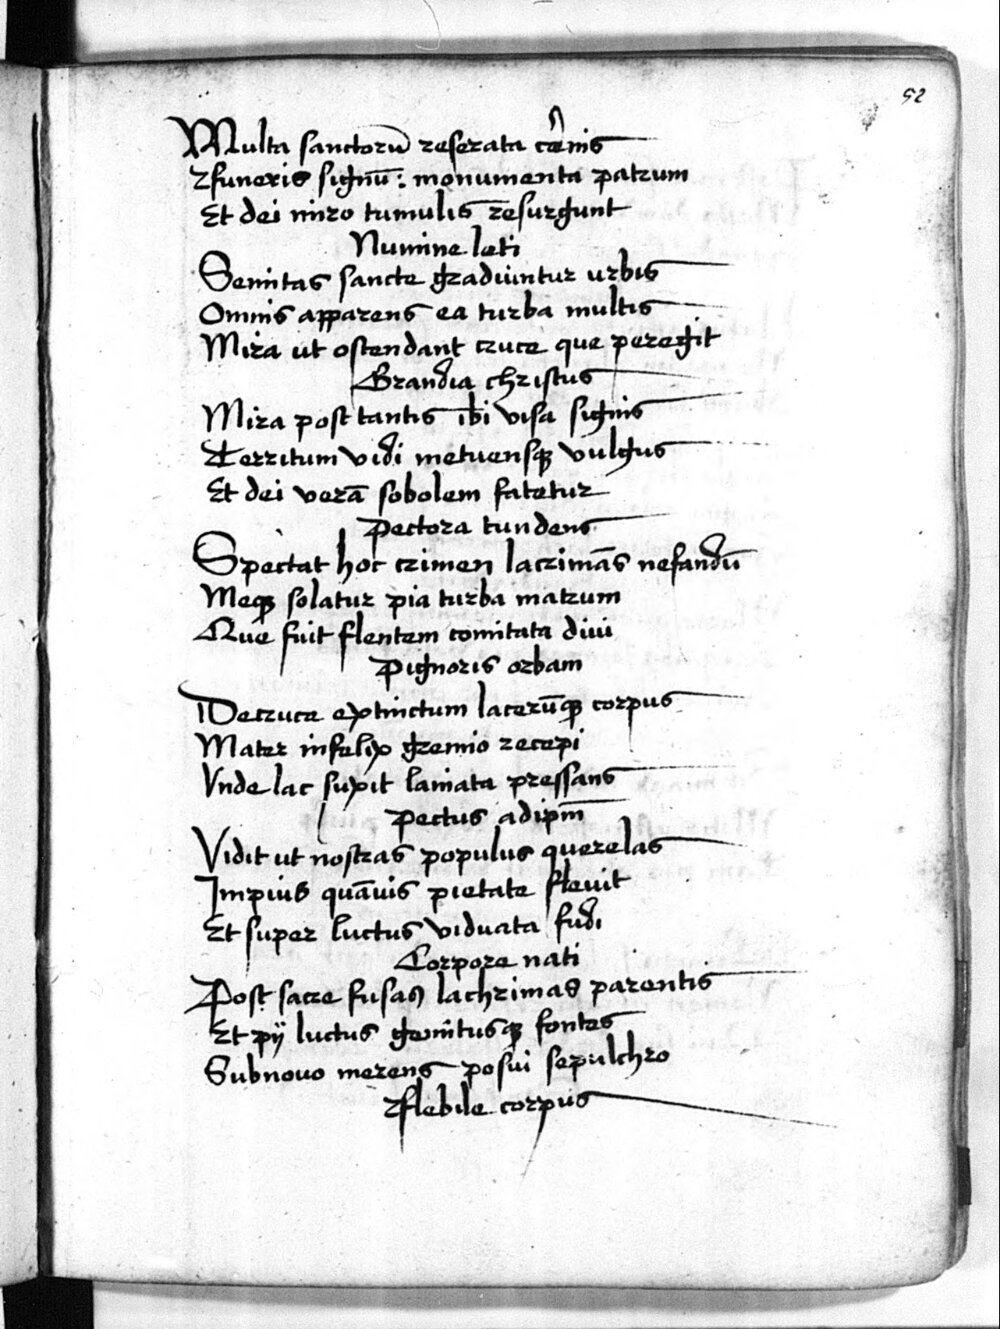 52
Multa sanctorū reserata cernis
Funeris signū: monumenta patrum
Et dei miro tumulis resurgunt
Numine leti
Semitas sancte gradiuntur urbis
Omnis apparens ea turba multis
Mira ut ostendant cruce que peregit
Grandia christus
Mira post tantis ibi visa signis
Territum vidi metuensqꝫ vulgus
Et dei verā sobolem fatetur
Pectora tundens
Spectat hoc crimen lacrimās nefandū
Meqꝫ solatur pia turba matrum
Que fuit flentem comitata diui
Pignoris orbam
De cruce extinctum lacerūqꝫ corpus
Mater infelix gremio recepi
Unde lac suxit laniata pressans
Pectus adipm̄
Vidit ut nostras populus querelas
Impius quāuis pietate fleuit
Et super luctus viduata fudi
Corpore nati
Post sacre fusas lachrimas parentis
Et pij luctus gemitusqꝫ fontes
Sub nouo merens posui sepulchro
Flebile corpus